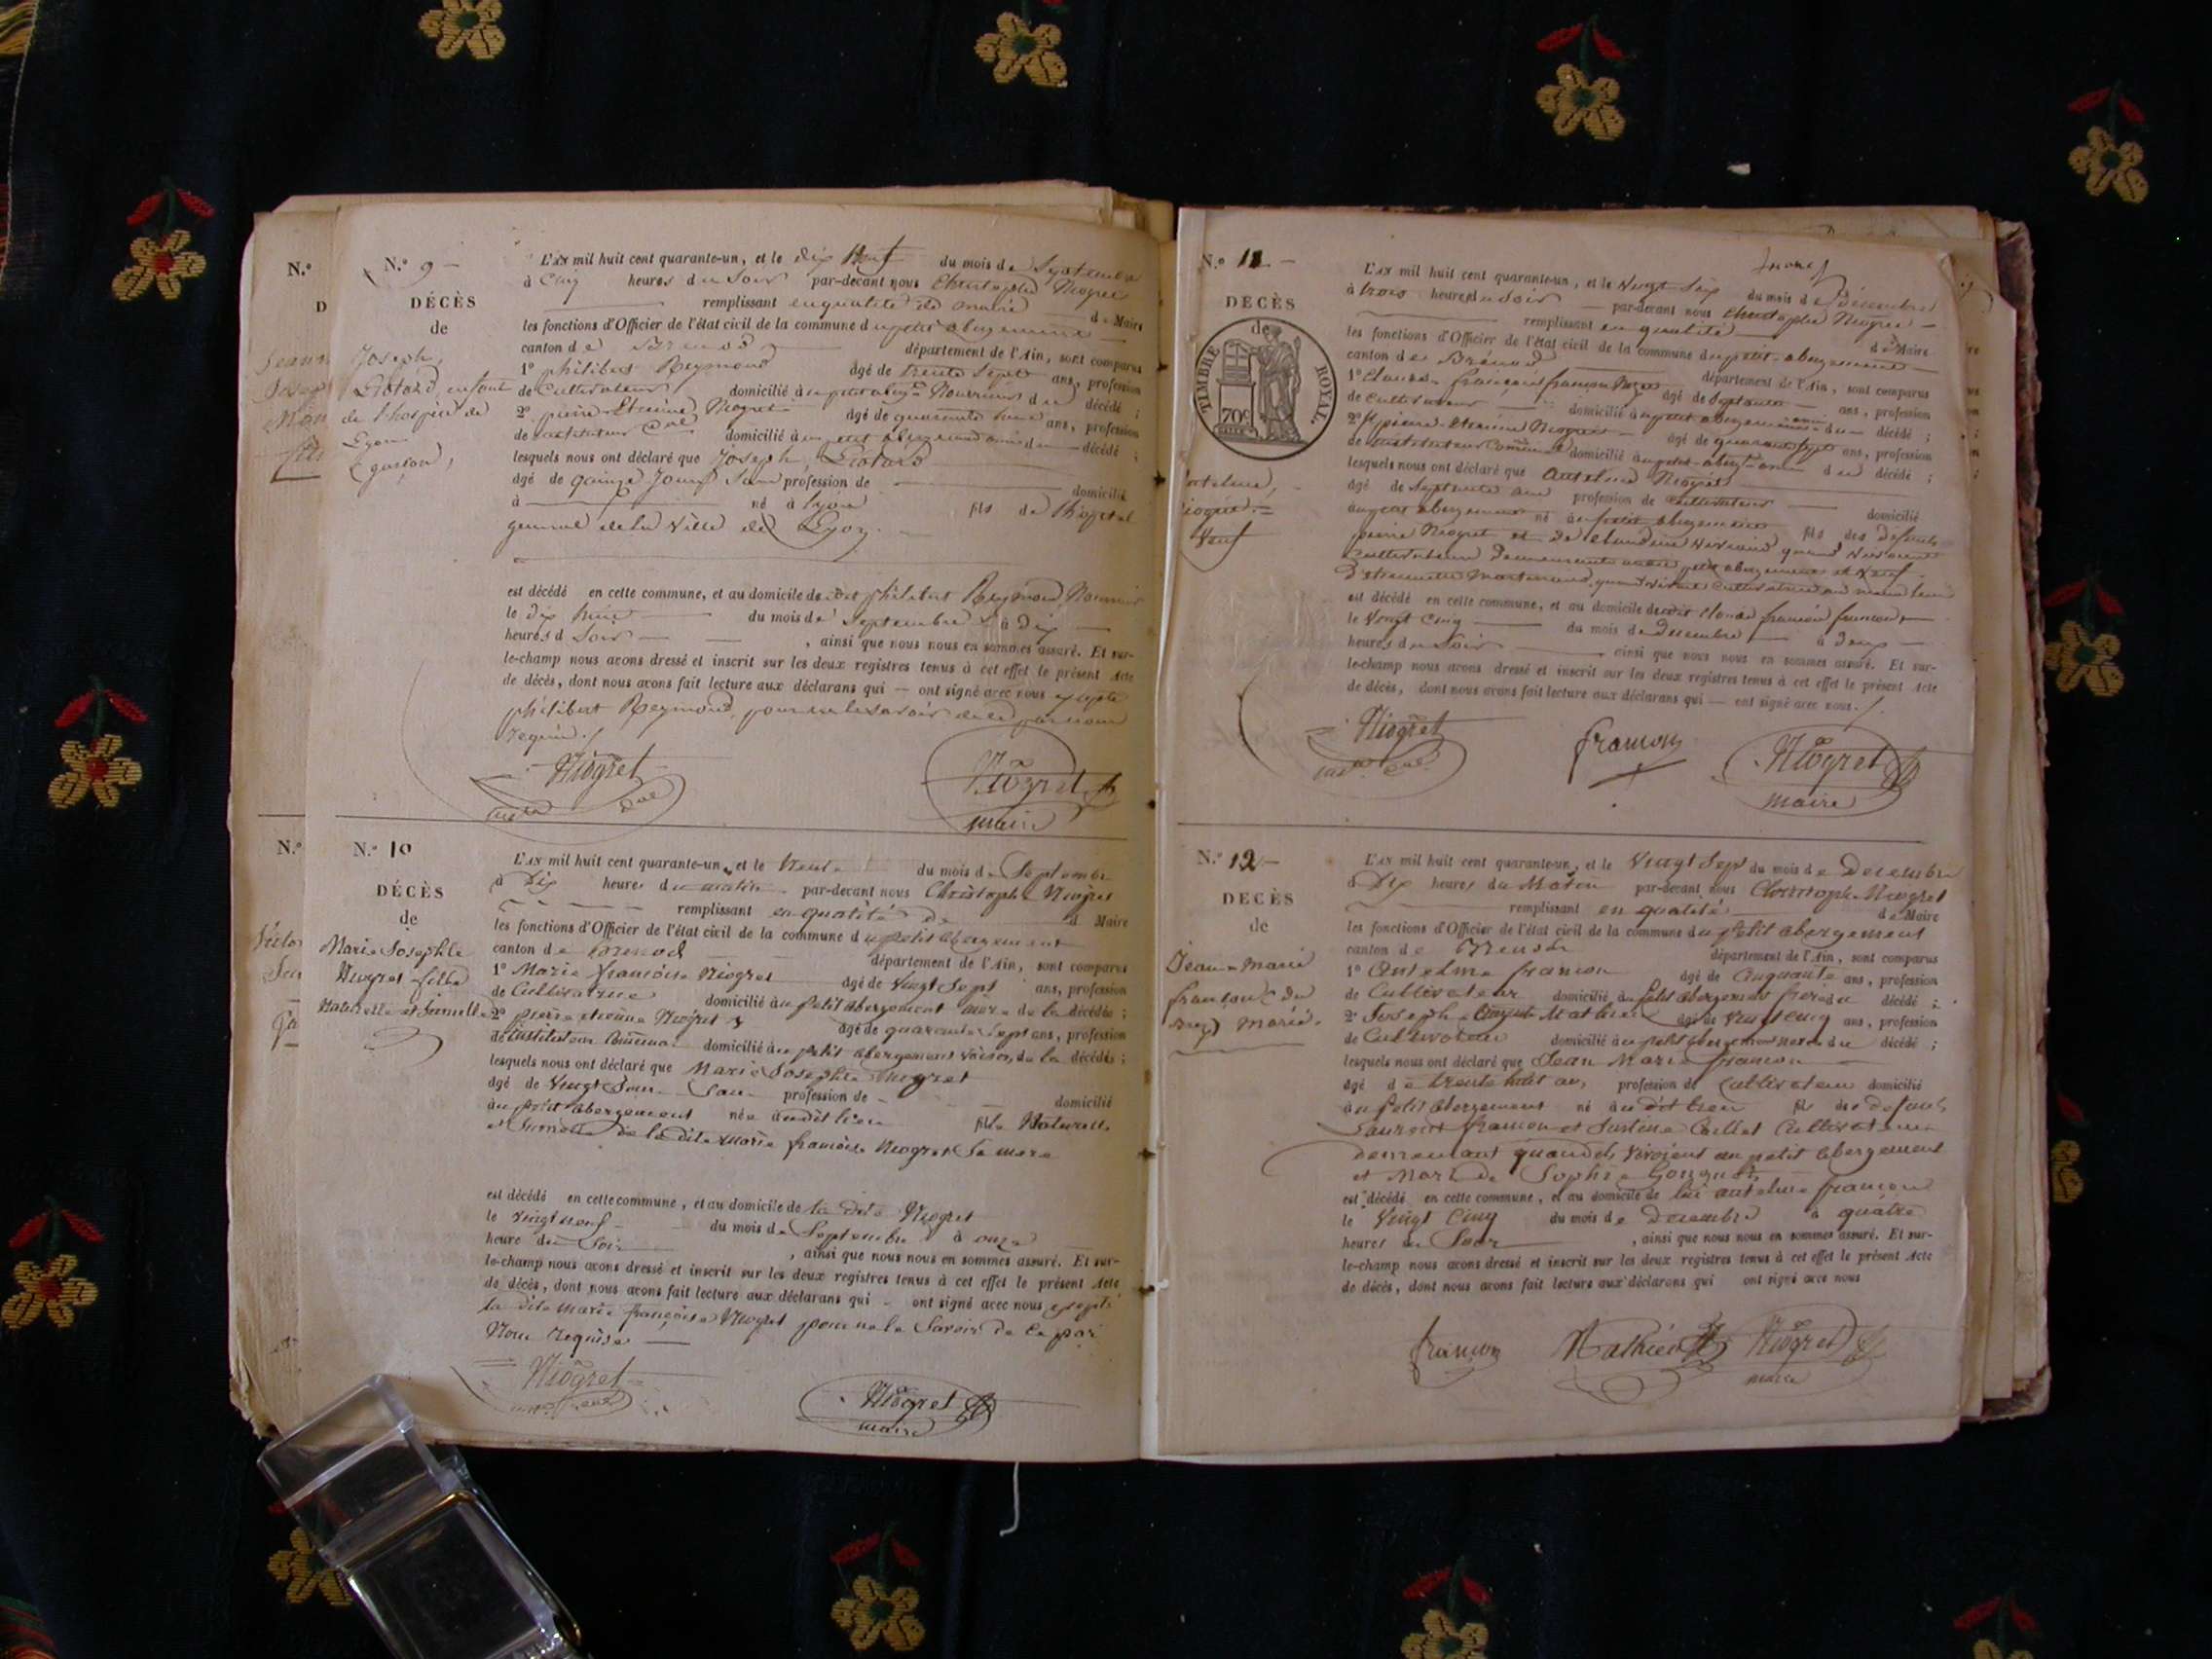 N.º
D
N.º 9
DÉCÈS
de
Joseph,
Liotard enfant
de l'hospice de
Lyon
(garçon)
L'AN mil huit cent quarante-un, et le dix neuf du mois de Septembre
à Cinq heures du Soir par-devant nous Christophe Niogret
remplissant en qualité de maire de Maire
les fonctions d'Officier de l'état civil de la commune du petit abergement
canton de Brenod département de l'Ain, sont comparus
1º philibert Reymond âgé de trente sept ans, profession
de Cultivateur domicilié au petit aberg.t Nourricier du décédé ;
2º pierre Etienne Niogret âgé de quarante ans, profession
de instituteur domicilié au petit abergement ami du décédé ;
lesquels nous ont déclaré que Joseph, Liotard
âgé de quinze Jours Sans profession de domicilié
à né à lyon fils de l'hôpital
general de la Ville de Lyon
est décédé en cette commune, et au domicile de dit philibert Reymond Nourricier
le dix huit du mois de Septembre à Dix
heures d Soir , ainsi que nous nous en sommes assuré. Et sur-
le-champ nous avons dressé et inscrit sur les deux registres tenus à cet effet le présent Acte
de décès, dont nous avons fait lecture aux déclarans qui — ont signé avec nous excepté
philibert Reymond, pour ne le savoir de ce par nous
requis.
Niogret
Niogret
maire
N.º
N.º 10
DÉCÈS
de
Marie Josephte
Niogret fille
Naturelle et Jumelle
L'AN mil huit cent quarante-un, et le trente du mois de Septembre
à Dix heures du matin par-devant nous Christophe Niogret
remplissant en qualité de d Maire
les fonctions d'Officier de l'état civil de la commune du petit abergement
canton de Brenod département de l'Ain, sont comparus
1º Marie françoise Niogret âgé de Vingt Sept ans, profession
de Cultivatrice domicilié au petit abergement mère de la décédée ;
2º pierre etienne Niogret âgé de quarante sept ans, profession
de instituteur Communal domicilié au petit abergement voisin de la décédée ;
lesquels nous ont déclaré que Marie Josephte Niogret
âgé de Vingt Jours Sans profession de domicilié
au petit abergement née audit lieu fille Naturelle
et Jumelle de la dite marie françoise Niogret Sa mere
est décédé en cette commune, et au domicile de la dite Niogret
le Vingt neuf du mois de Septembre à onze
heure du Soir , ainsi que nous nous en sommes assuré. Et sur-
le-champ nous avons dressé et inscrit sur les deux registres tenus à cet effet le présent Acte
de décès, dont nous avons fait lecture aux déclarans qui - ont signé avec nous excepté
la dite marie françoise Niogret pour ne le Savoir de ce par
Nous requise
Niogret
Niogret
maire
N.º 11
DÉCÈS
de
TIMBRE ROYAL
70c
antelme,
Niogret
Veuf
L'AN mil huit cent quarante-un, et le Vingt Six du mois de décembre
à trois heures du Soir par-devant nous Christophe Niogret
remplissant en qualité de Maire
les fonctions d'Officier de l'état civil de la commune du petit abergement
canton de Brénod département de l'Ain, sont comparus
1º Claude françois françon âgé de Septante ans, profession
de Cultivateur domicilié au petit abergement du décédé ;
2º pierre Etienne Niogret âgé de quarante sept ans, profession
de instituteur Communal domicilié au petit aberg.t ami du décédé ;
lesquels nous ont déclaré que Antelme Niogret
âgé de Septante ans profession de Cultivateur domicilié
au petit abergement né au petit abergement fils des défunts
pierre Niogret et de Claudine quand Vivaient
Cultivateurs Demeurants au petit abergement et Veuf
est décédé en cette commune, et au domicile de dit Claude francois francon
le Vingt Cinq du mois de Décembre à Deux
heures du Soir ainsi que nous nous en sommes assuré. Et sur-
le-champ nous avons dressé et inscrit sur les deux registres tenus à cet effet le présent Acte
de décès, dont nous avons fait lecture aux déclarans qui — ont signé avec nous.
Niogret
françon
Niogret
maire
N.º 12
DÉCÈS
de
Jean-marie
françon (du
) marié.
L'AN mil huit cent quarante-un, et le Vingt Sept du mois de Decembre
à Dix heures du Matin par-devant nous Christophe Niogret
remplissant en qualité de Maire
les fonctions d'Officier de l'état civil de la commune du petit abergement
canton de Brenod département de l'Ain, sont comparus
1º Antelme françon âgé de Cinquante ans, profession
de Cultivateur domicilié au petit abergement frère du décédé ;
2º Joseph Mathieu âgé de Vingt cinq ans, profession
de Cultivateur domicilié au petit abergement du décédé ;
lesquels nous ont déclaré que Jean Marie françon
âgé de trente huit ans, profession de Cultivateur domicilié
au petit abergement né au dit lieu fils des defunts
françon et Justine Caillet Cultivateurs
demeurant quand ils Vivoient au petit abergement
et Mari de Sophie
est décédé en cette commune, et au domicile de lui antelme françon
le Vingt Cinq du mois de Decembre à quatre
heures du Soir , ainsi que nous nous en sommes assuré. Et sur-
le-champ nous avons dressé et inscrit sur les deux registres tenus à cet effet le présent Acte
de décès, dont nous avons fait lecture aux déclarans qui ont signé avec nous
françon
Mathieu
Niogret
maire